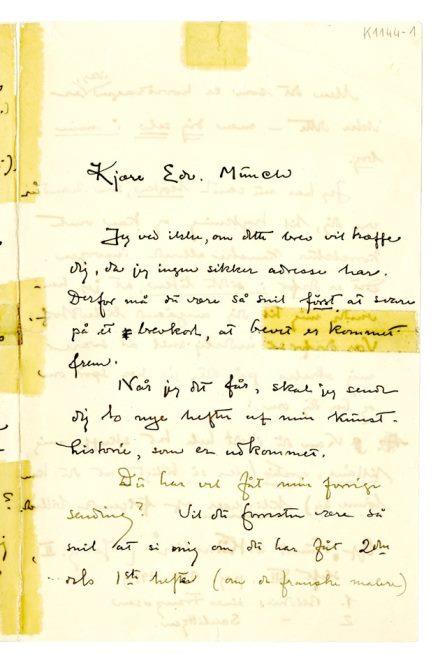 K1144-1
Kjære Edv. Münch
Jeg ved ikke, om dette brev vil træffe
dig, da jeg ingen sikker adresse har.
Derfor må du være så snil først at svare
på et brevkort, at brevet er kommet
frem.
Når jeg det får, skal jeg sende
dig to nye hefter af min kunst-
historie, som er udkommet.
Du har vel fåt min forrige
sending? Vil du forresten være så
snil at si mig om du har fåt 2den
dels 1ste hefte (om de franske malere)